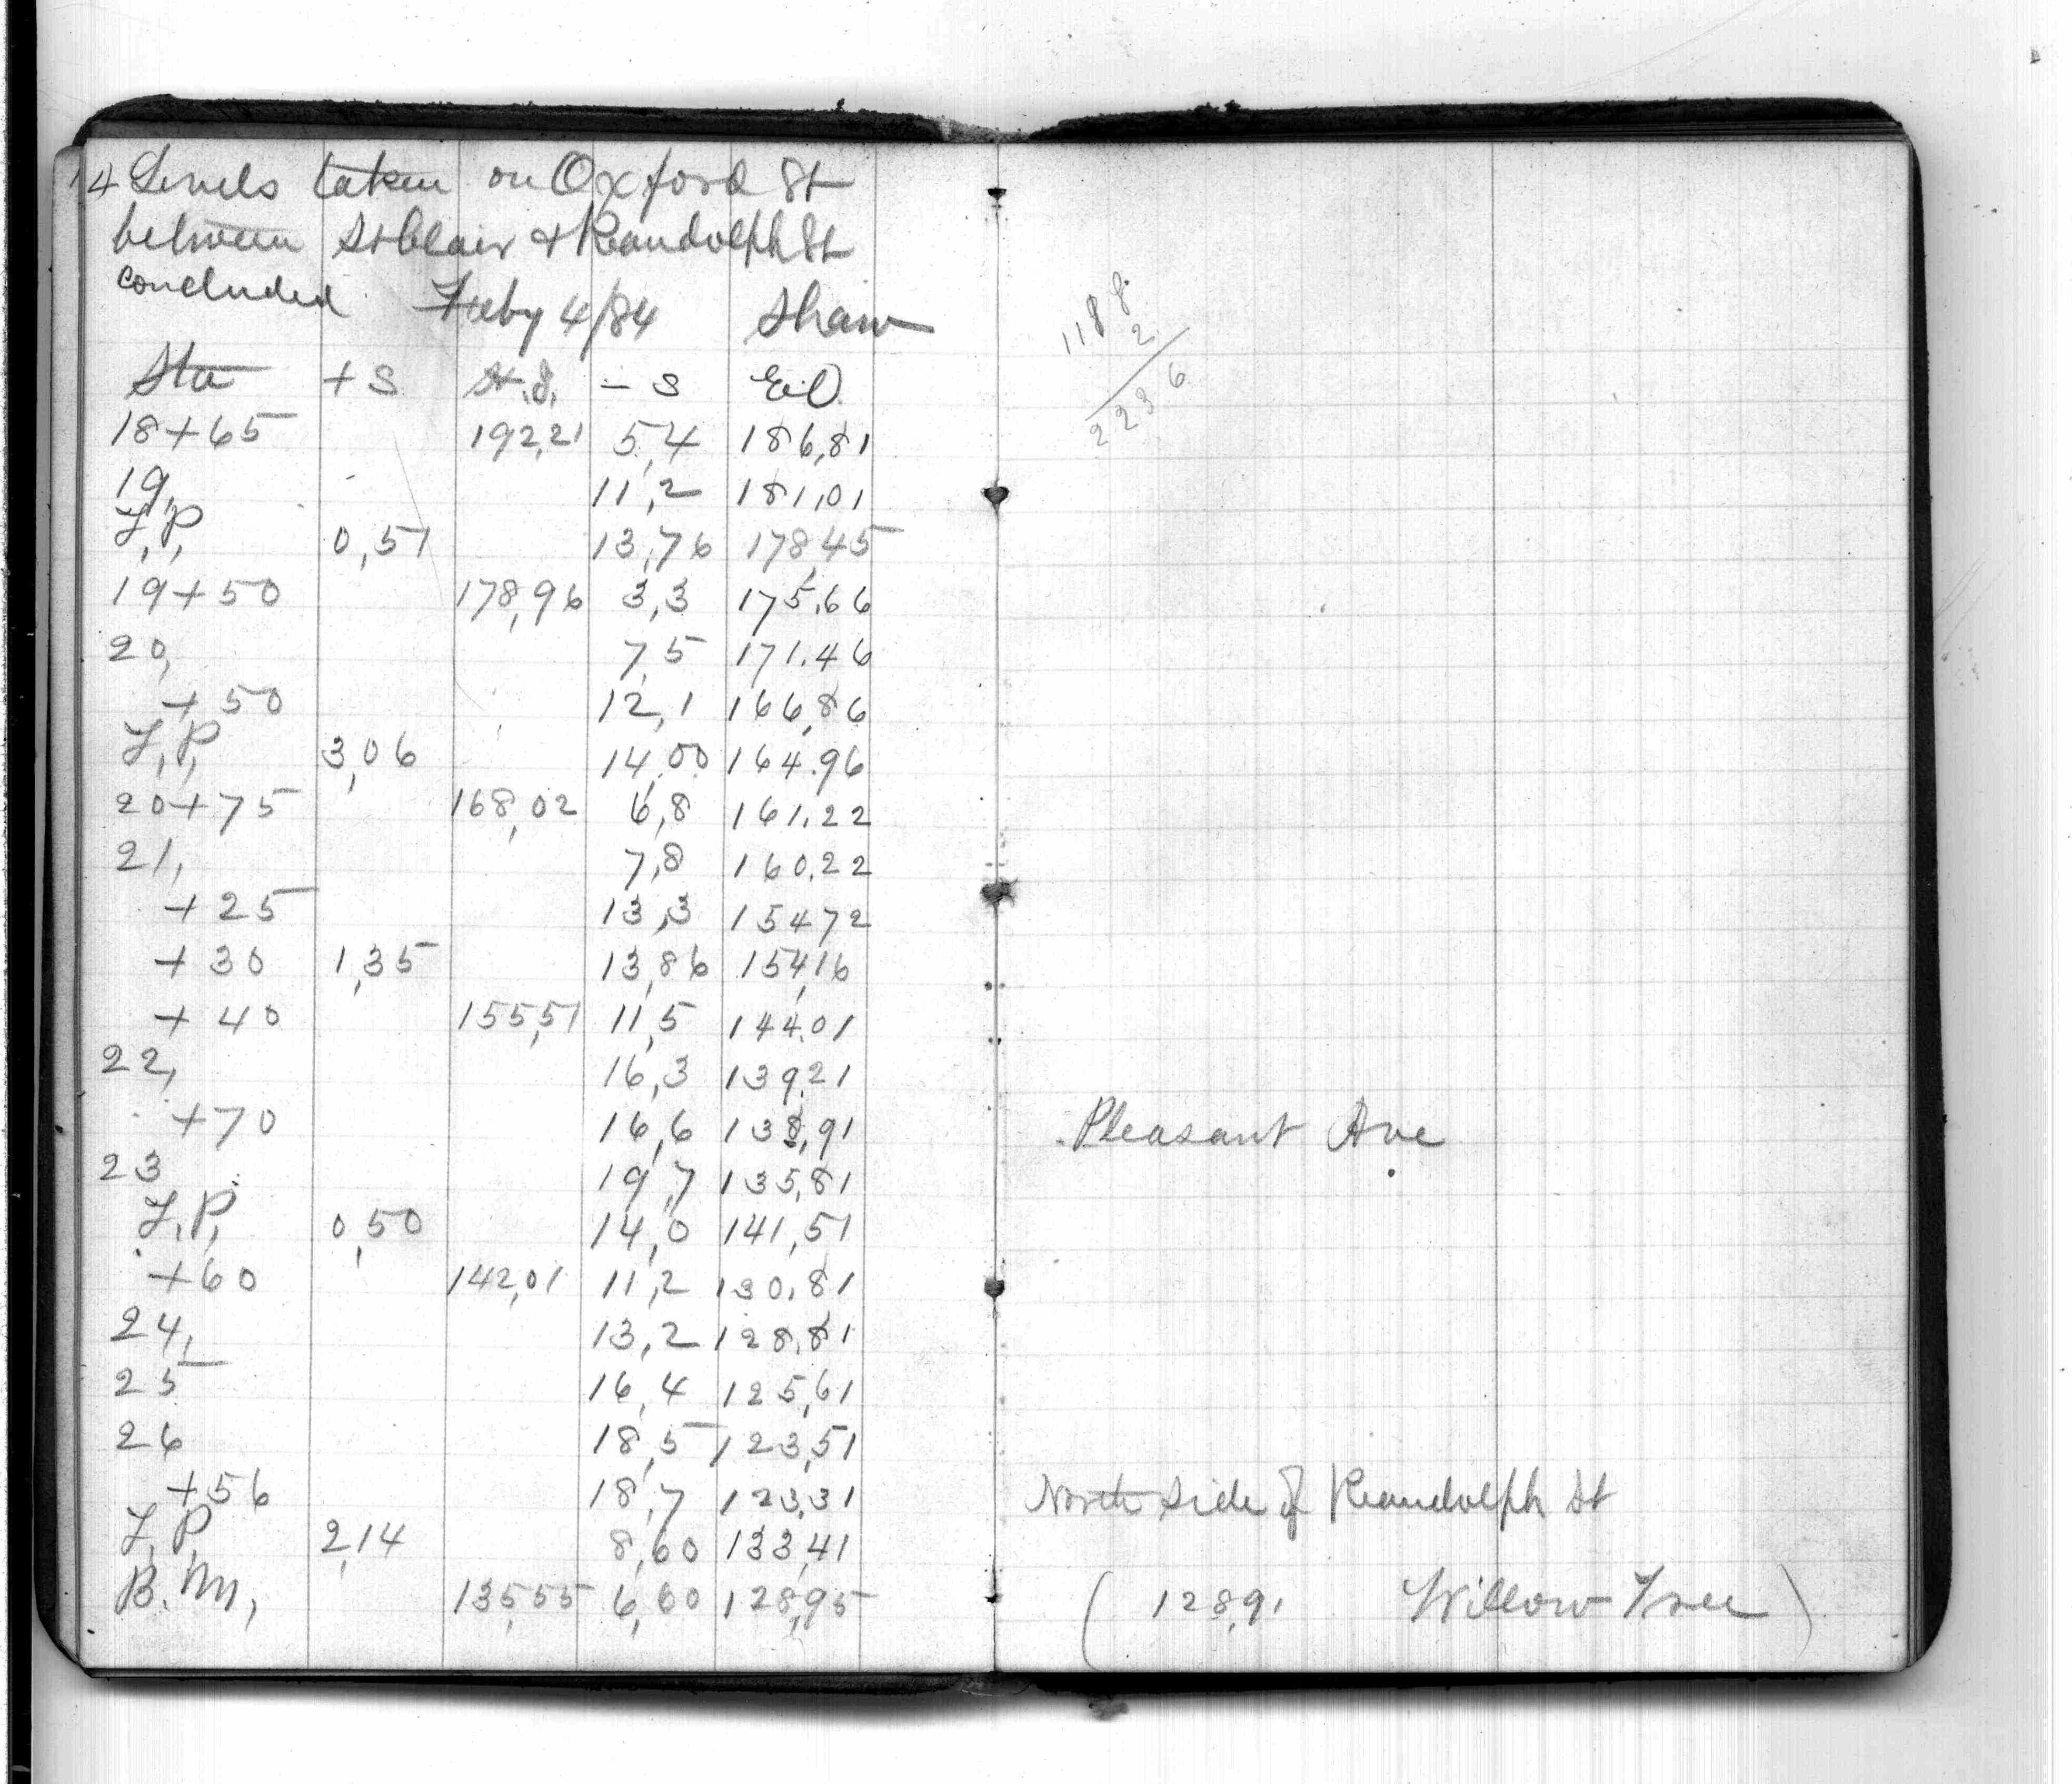 14 Levels taken on Oxford St
between St Clair & Randolph St
concluded Feby 4/84 Shaw
Sta +S H.I. -S El.
18+65 192,21 5,4 186,81
19, 11,2 181,01
T,P, 0,51 13,76 178,45
19+50 178,96 3,3 175.66
20, 7,5 171.46
+50 12,1 166,86
T,P, 3,06 14,00 164.96
20+75 168,02 6,8 161.22
21, 7,8 160,22
+25 13,3 15472
+30 1,35 13,86 154,16
+40 155,51 11,5 144.01
22, 16,3 139.21
+70 16,6 138,91 Pleasant Ave
23 19,7 135,81
T.P, 0,50 14,0 141,51
+60 142,01 11,2 130.81
24, 13,2 128,81
25 16,4 125,61
26 18,5 123,51
+56 18,7 123,31 North side of Randolph St
T,P, 2,14 8,60 133,41
B.M, 135,55 6,60 128,95 ( 128,91 Willow Tree )
1188
2
2236